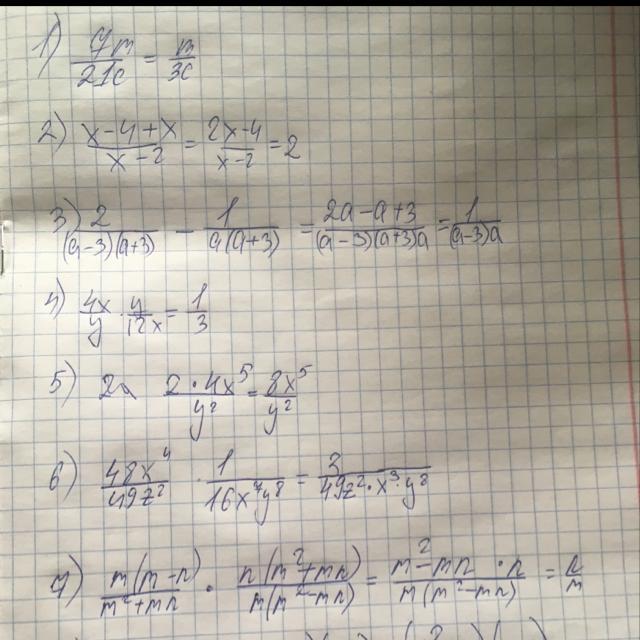 1) 7m/21c = m/3c
2) x-4+x/x-2 = 2x-4/x-2 = 2
3) 2/(a-3)(a+3) - 1/a(a+3) = 2a-a+3/(a-3)(a+3)a = 1/(a-3)a
4) 4x/y · y/12x = 1/3
5) 2·4x⁵/y² = 8x⁵/y²
6) 48x⁴/49z² · 1/16x⁷y⁸ = 3/49z²·x³·y⁸
7) m(m-n)/m²+mn · n(m²+mn)/m(m²-mn) = m²-mn·n/m(m²-mn) = n/m